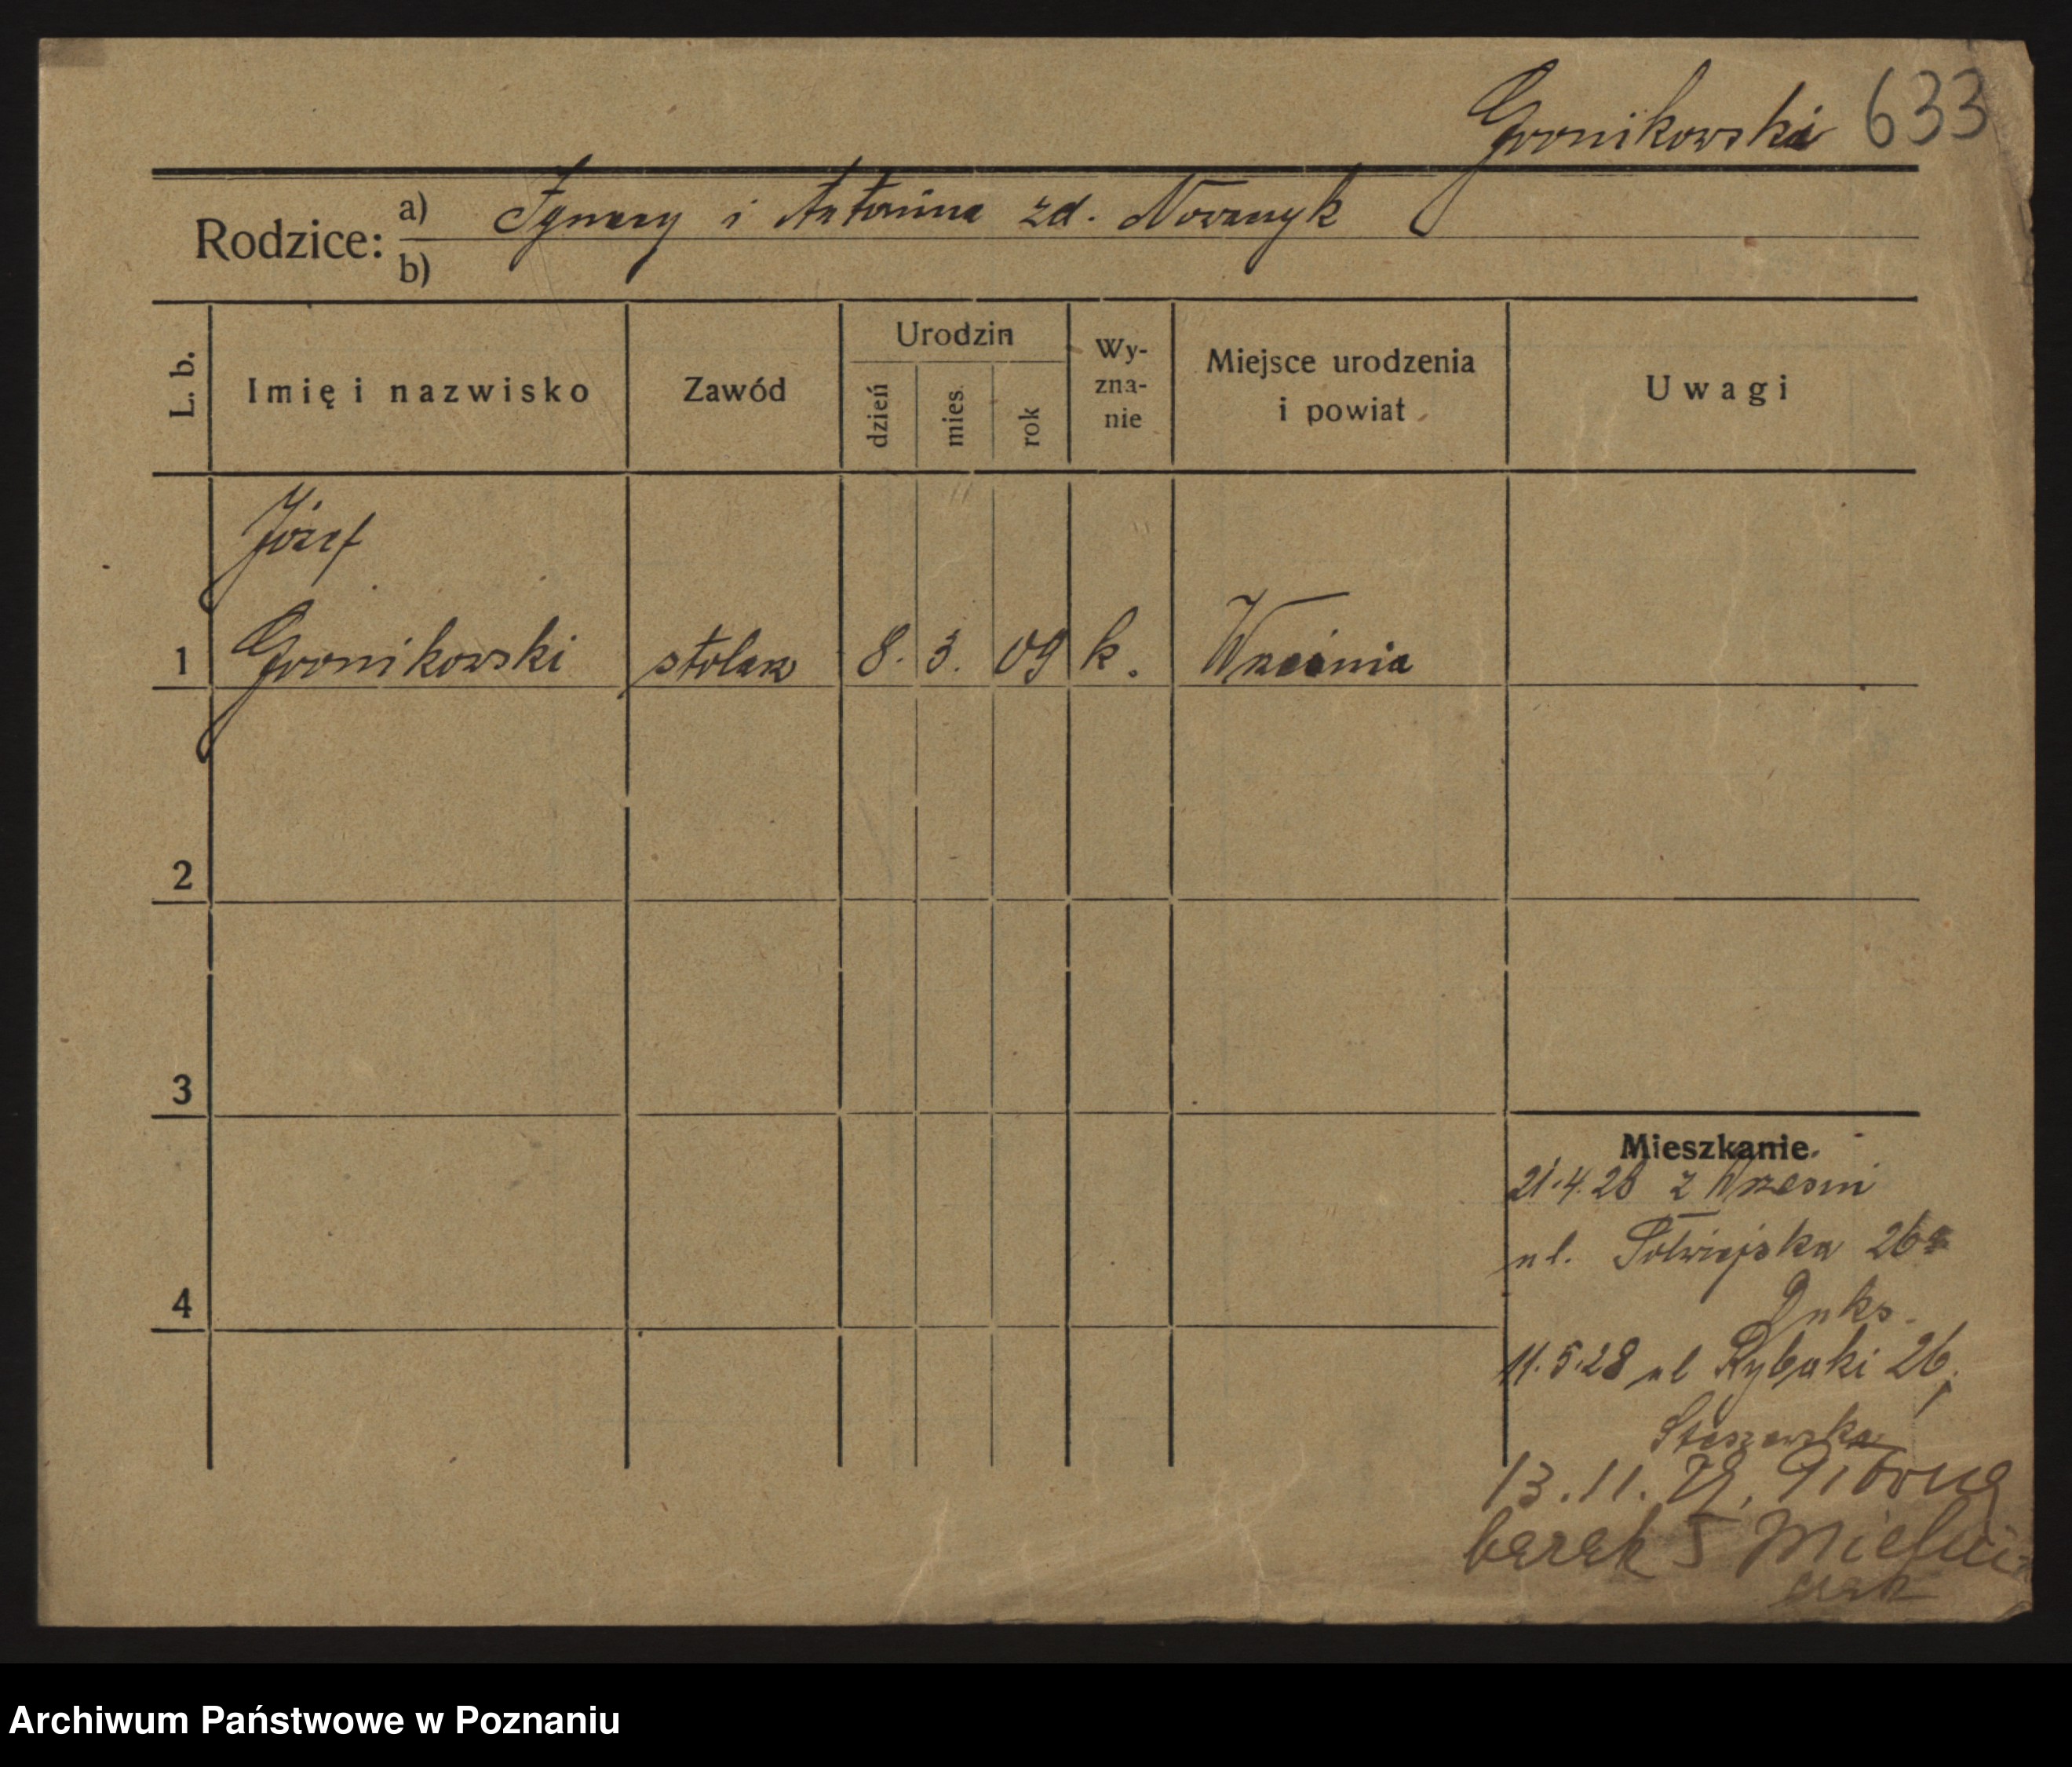 Gronikowski 633
Rodzice: a) Ignacy i Antonina zd. Nowaczyk
b)
L. b. Imię i nazwisko Zawód Urodzin dzień mies. rok Wy-zna-nie Miejsce urodzenia i powiat Uwagi
Józef
1 Gronikowski stolarz 8. 3. 09 k. Września
2
3
4
Mieszkanie.
21.4.28 z Wrześni
ul. Półwiejska 26
Duks.
11.5.28 ul Rybaki 26,
Staszewska
13.11.
barak 5 Mielni-
czak
Archiwum Państwowe w Poznaniu